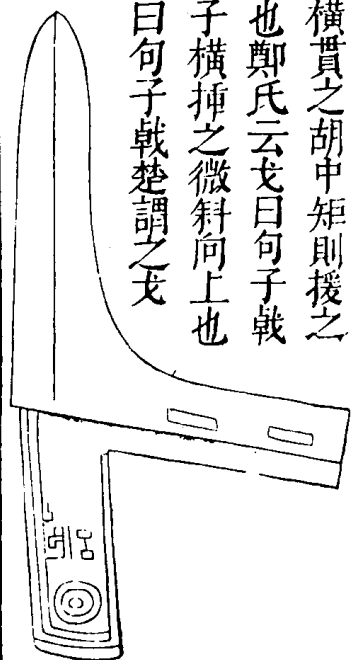 橫貫之胡中矩則援之
也鄭氏云戈曰句子戟
子橫揷之微斜向上也
曰句子戟楚謂之戈